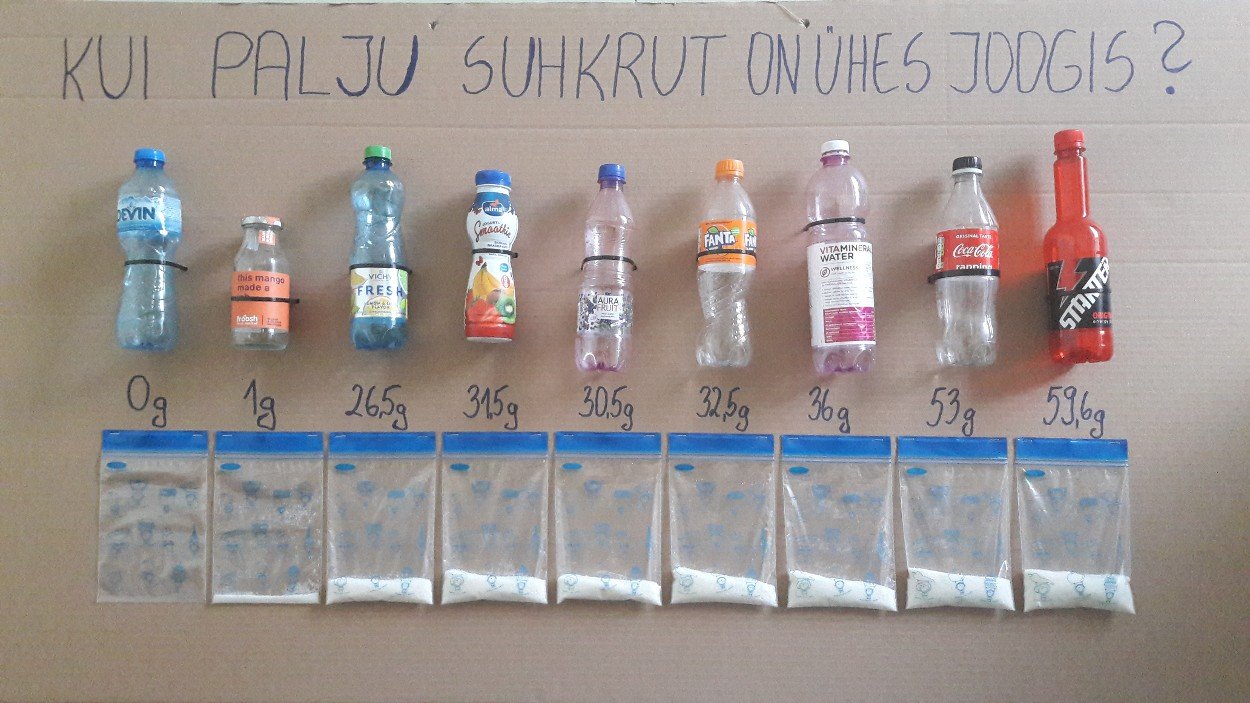 KUI PALJU SUHKRUT ON ÜHES JOOGIS?
DEVIN
this mango
made a
froosh
VICHY
FRESH
alma
Smoothie
AURA
FRUIT
FANTA
VITAMINERAL
WATER
WELLNESS
ORIGINAL TASTE
Coca-Cola
STARTER
ORIGINAL
0g 1g 26,5g 31,5g 30,5g 32,5g 36g 53g 59,6g